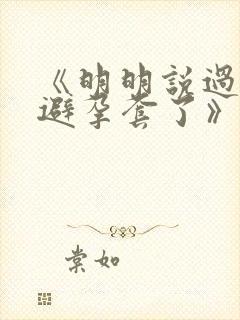 《明明說過
避孕套了》
棠如